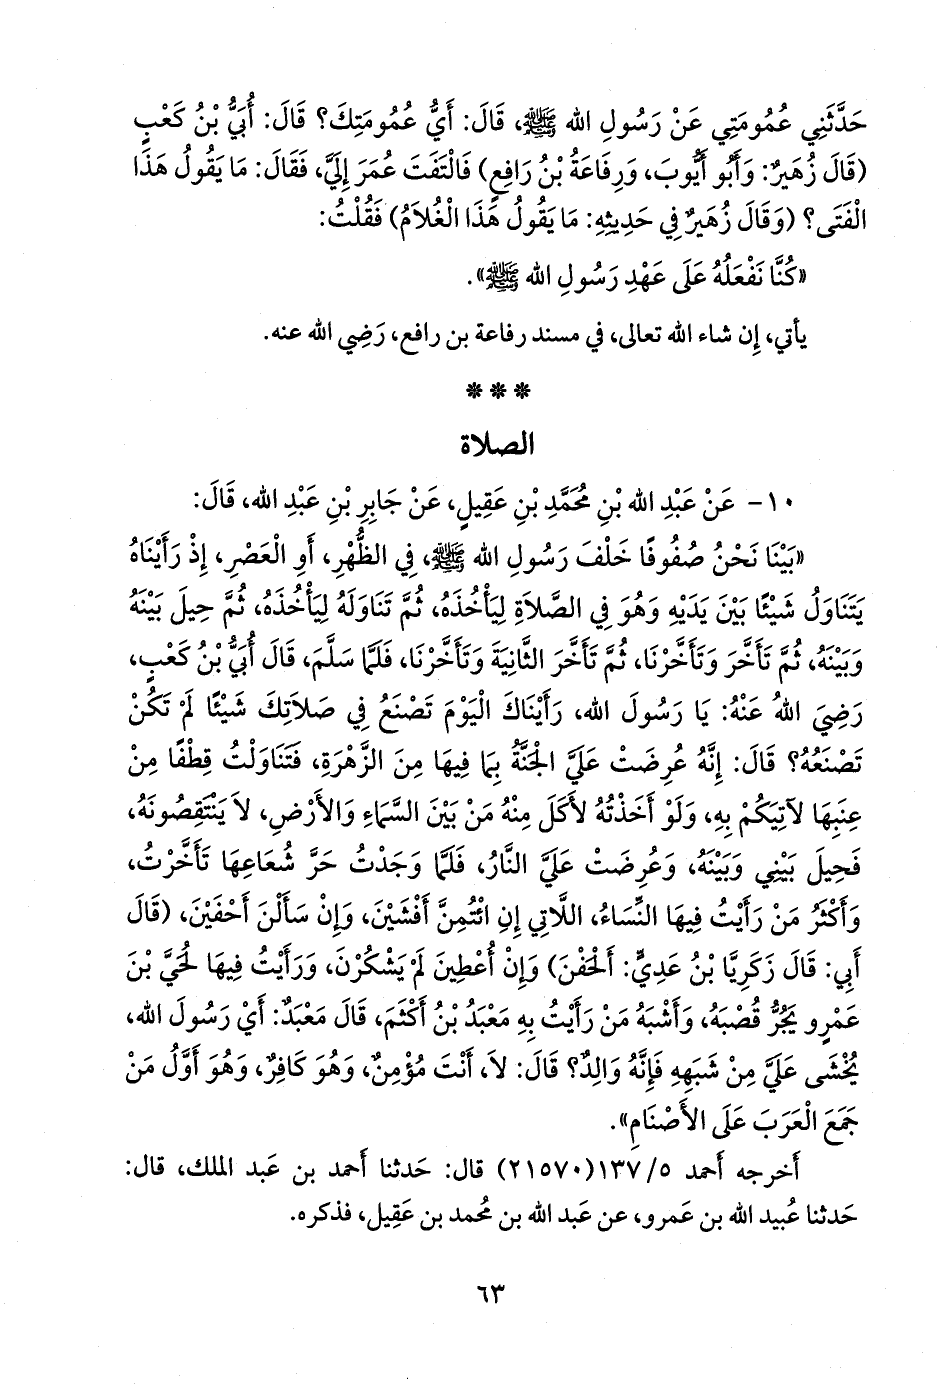 حَدَّثَنِي عُمُومَتِي عَنْ رَسُولِ الله ﷺ، قَالَ: أَيُّ عُمُومَتِكَ؟ قَالَ: أُبَيُّ بْنُ كَعْبٍ
(قَالَ زُهَيرٌ: وَأَبُو أَيُّوبَ، وَرِفَاعَةُ بْنُ رَافِعٍ) فَالْتَفَتَ عُمَرَ إِلَيَّ، فَقَالَ: مَا يَقُولُ هَذَا
الْفَتَى؟ (وَقَالَ زُهَيرٌ فِي حَدِيثِهِ: مَا يَقُولُ هَذَا الْغُلاَمُ) فَقُلْتُ:
«كُنَّا نَفْعَلُهُ عَلَى عَهْدِ رَسُولِ الله ﷺ».
يأتي، إِن شاء الله تعالى، في مسند رفاعة بن رافع، رَضِي الله عنه.
***
الصلاة
١٠- عَنْ عَبْدِ الله بْنِ مُحَمَّدِ بْنِ عَقِيلٍ، عَنْ جَابِرِ بْنِ عَبْدِ الله، قَالَ:
«بَيْنَا نَحْنُ صُفُوفًا خَلْفَ رَسُولِ الله ﷺ، فِي الظُّهْرِ، أَوِ الْعَصْرِ، إِذْ رَأَيْنَاهُ
يَتَنَاوَلُ شَيْئًا بَيْنَ يَدَيْهِ وَهُوَ فِي الصَّلاَةِ لِيَأْخُذَهُ، ثُمَّ تَنَاوَلَهُ لِيَأْخُذَهُ، ثُمَّ حِيلَ بَيْنَهُ
وَبَيْنَهُ، ثُمَّ تَأَخَّرَ وَتَأَخَّرْنَا، ثُمَّ تَأَخَّرَ الثَّانِيَةَ وَتَأَخَّرْنَا، فَلَمَّا سَلَّمَ، قَالَ أُبَيُّ بْنُ كَعْبٍ،
رَضِيَ اللهُ عَنْهُ: يَا رَسُولَ الله، رَأَيْنَاكَ الْيَوْمَ تَصْنَعُ فِي صَلاَتِكَ شَيْئًا لَمْ تَكُنْ
تَصْنَعُهُ؟ قَالَ: إِنَّهُ عُرِضَتْ عَلَيَّ الْجَنَّةُ بِمَا فِيهَا مِنَ الزَّهْرَةِ، فَتَنَاوَلْتُ قِطْفًا مِنْ
عِنَبِهَا لآتِيَكُمْ بِهِ، وَلَوْ أَخَذْتُهُ لأَكَلَ مِنْهُ مَنْ بَيْنَ السَّمَاءِ وَالأَرْضِ، لاَ يَنْتَقِصُونَهُ،
فَحِيلَ بَيْنِي وَبَيْنَهُ، وَعُرِضَتْ عَلَيَّ النَّارُ، فَلَمَّا وَجَدْتُ حَرَّ شُعَاعِهَا تَأَخَّرْتُ،
وَأَكْثَرُ مَنْ رَأَيْتُ فِيهَا النِّسَاءُ، اللاَّتِي إِنِ ائْتُمِنَّ أَفْشَيْنَ، وَإِنْ سَأَلْنَ أَحْفَيْنَ، (قَالَ
أَبِي: قَالَ زَكَرِيَّا بْنُ عَدِيٍّ: أَلْحَفْنَ) وَإِنْ أُعْطِينَ لَمْ يَشْكُرْنَ، وَرَأَيْتُ فِيهَا لُحَيَّ بْنَ
عَمْرٍو يَجُرُّ قُصْبَهُ، وَأَشْبَهُ مَنْ رَأَيْتُ بِهِ مَعْبَدُ بْنُ أَكْثَمَ، قَالَ مَعْبَدٌ: أَيْ رَسُولَ الله،
يُخْشَى عَلَيَّ مِنْ شَبَهِهِ فَإِنَّهُ وَالِدٌ؟ قَالَ: لاَ، أَنْتَ مُؤْمِنٌ، وَهُوَ كَافِرٌ، وَهُوَ أَوَّلُ مَنْ
جَمَعَ الْعَرَبَ عَلَى الأَصْنَامِ».
أَخرجه أَحمد ١٣٧/٥(٢١٥٧٠) قال: حَدثنا أَحمد بن عَبد الملك، قال:
حَدثنا عُبيد الله بن عَمرو، عن عَبد الله بن مُحمد بن عَقِيل، فذكره.
٦٣